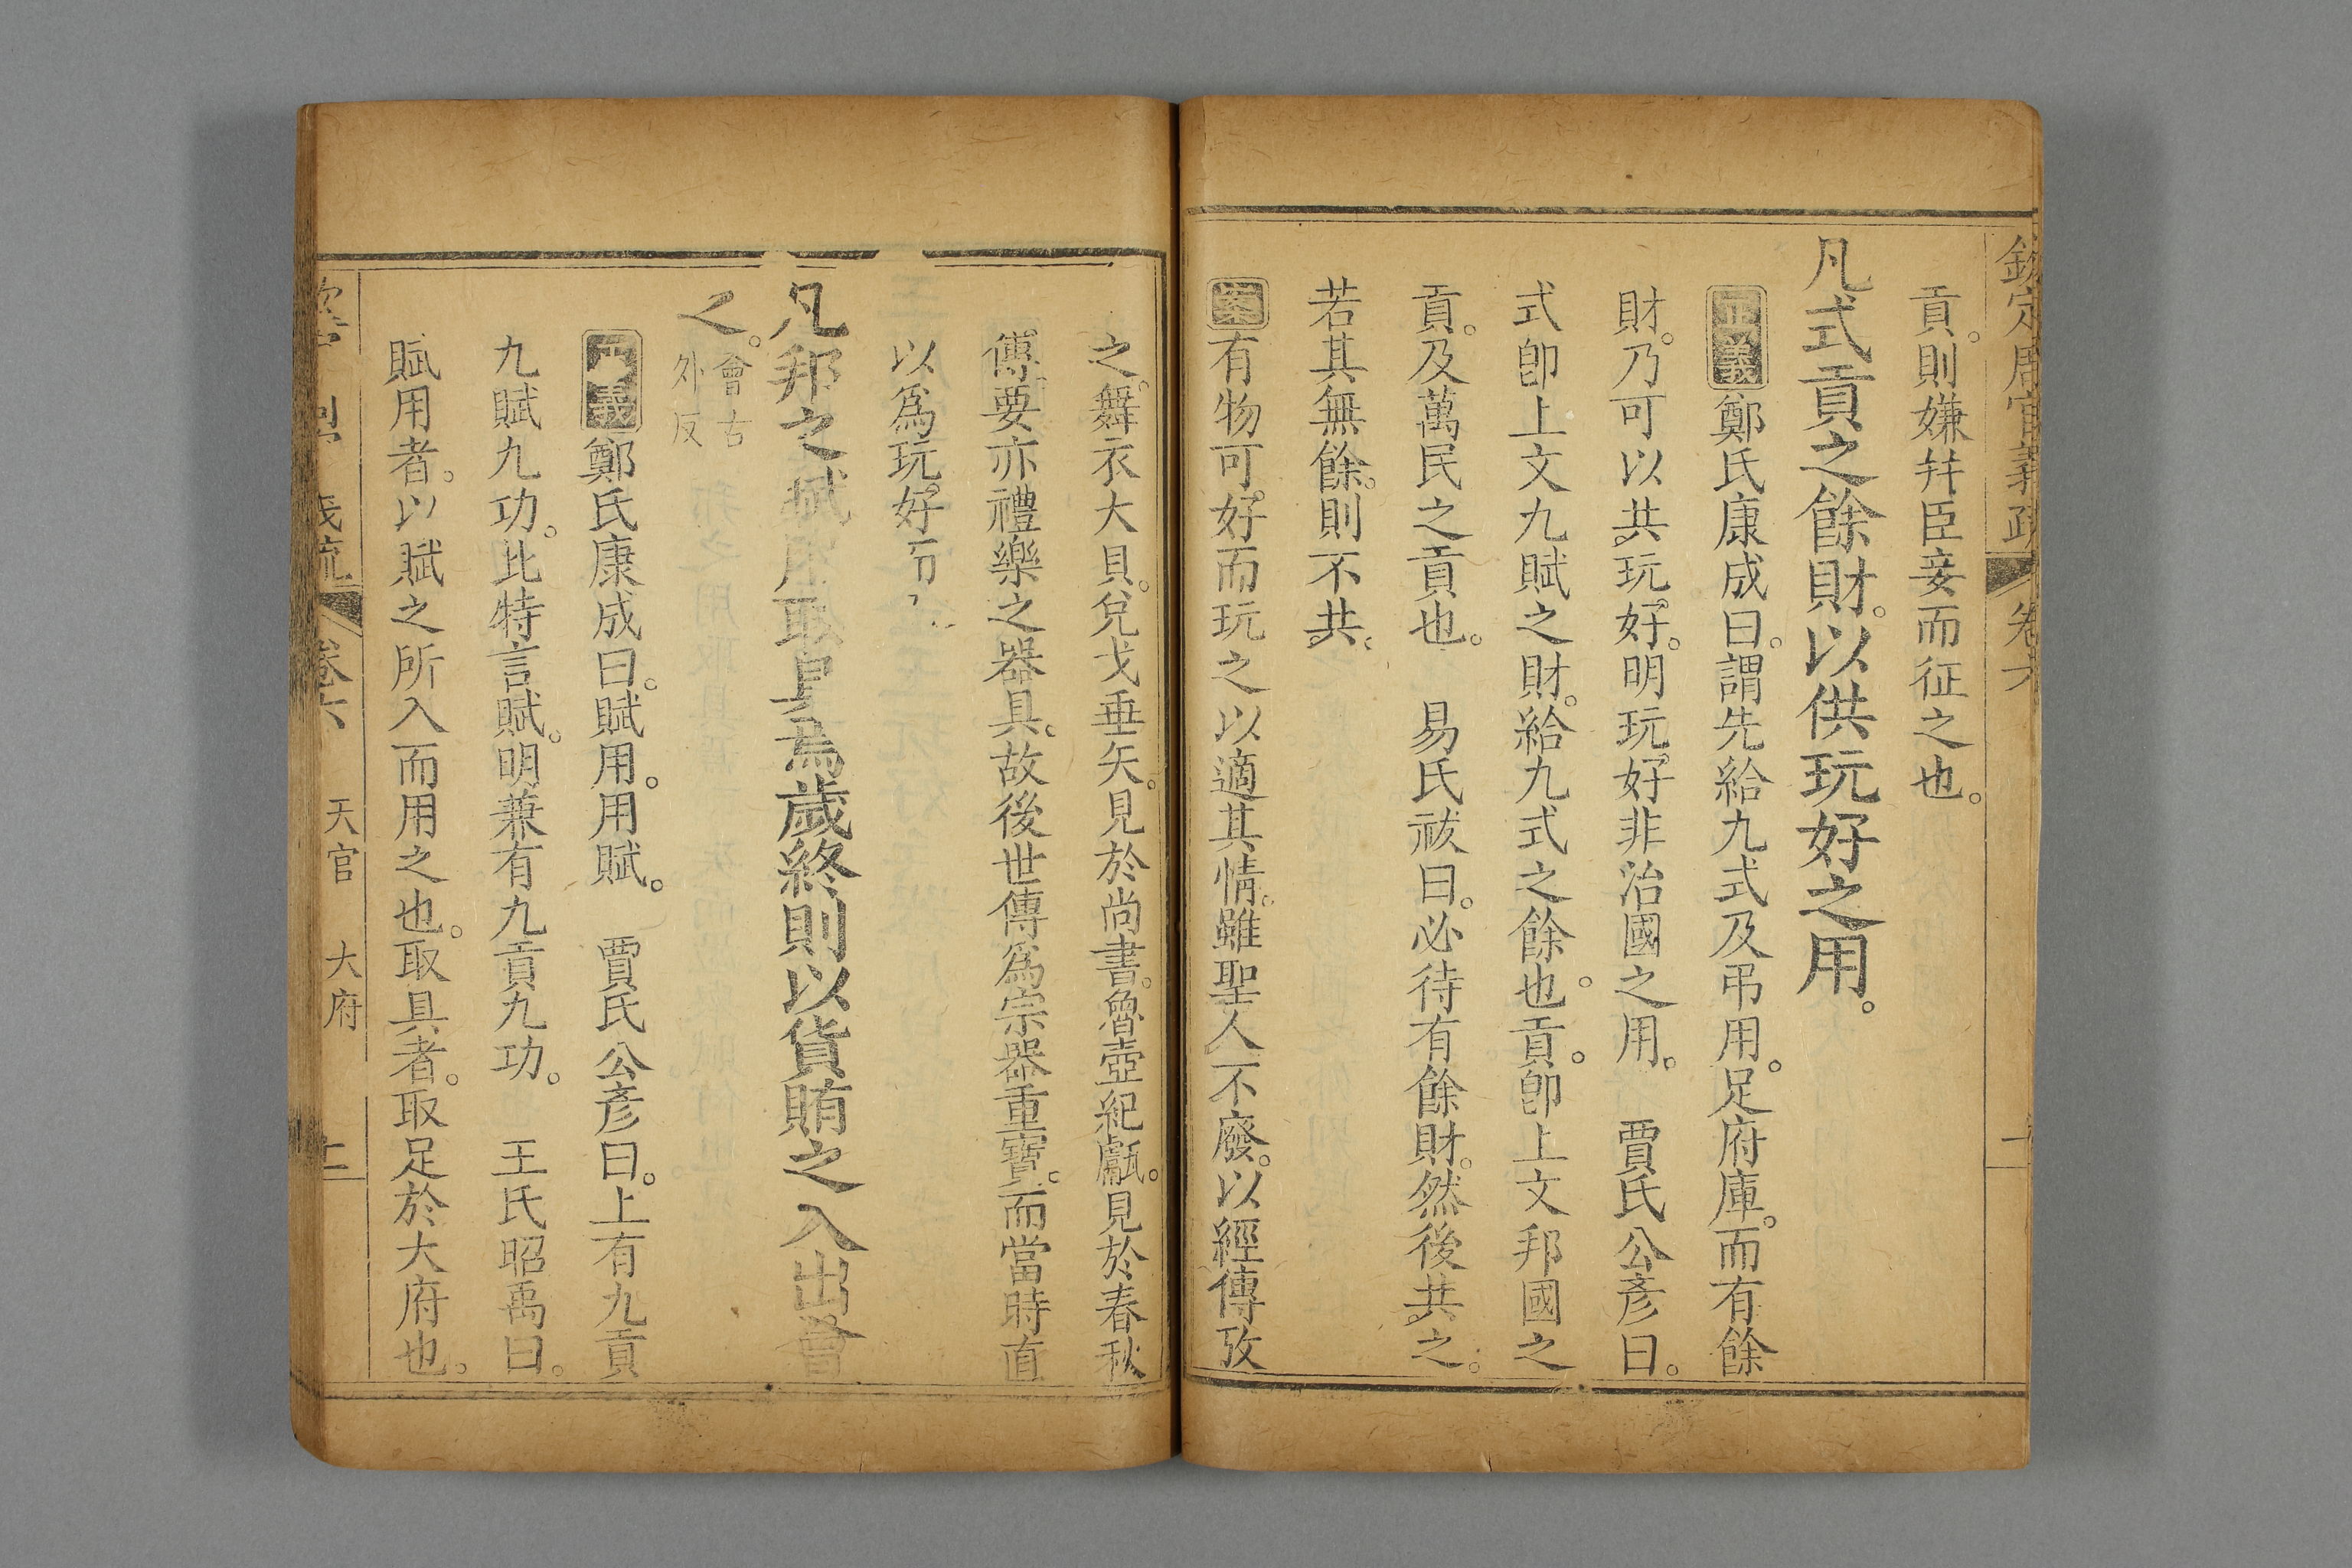 欽定周官義疏 卷六
貢。則嫌幷臣妾而征之也。
凡式貢之餘財。以供玩好之用。
正義鄭氏康成曰。謂先給九式及弔用。足府庫。而有餘
財。乃可以共玩好。明玩好非治國之用。 賈氏公彥曰。
式卽上文九賦之財。給九式之餘也。貢。卽上文邦國之
貢。及萬民之貢也。 易氏祓曰。必待有餘財。然後共之。
若其無餘。則不共。
案有物可好而玩之以適其情。雖聖人不廢。以經傳攷
之。舞衣大貝。兌戈垂矢。見於尚書。魯壺紀甗。見於春秋
傳。要亦禮樂之器具。故後世傳爲宗器重寶。而當時直
以爲玩好
凡邦之賦用取具焉歲終則以貨賄之入出會
之。會古外反
義鄭氏康成曰。賦用。用賦。 賈氏公彥曰。上有九貢
九賦九功。此特言賦。明兼有九貢九功。 王氏昭禹曰。
賦用者。以賦之所入而用之也。取具者。取足於大府也。
義疏 卷六 天官 大府